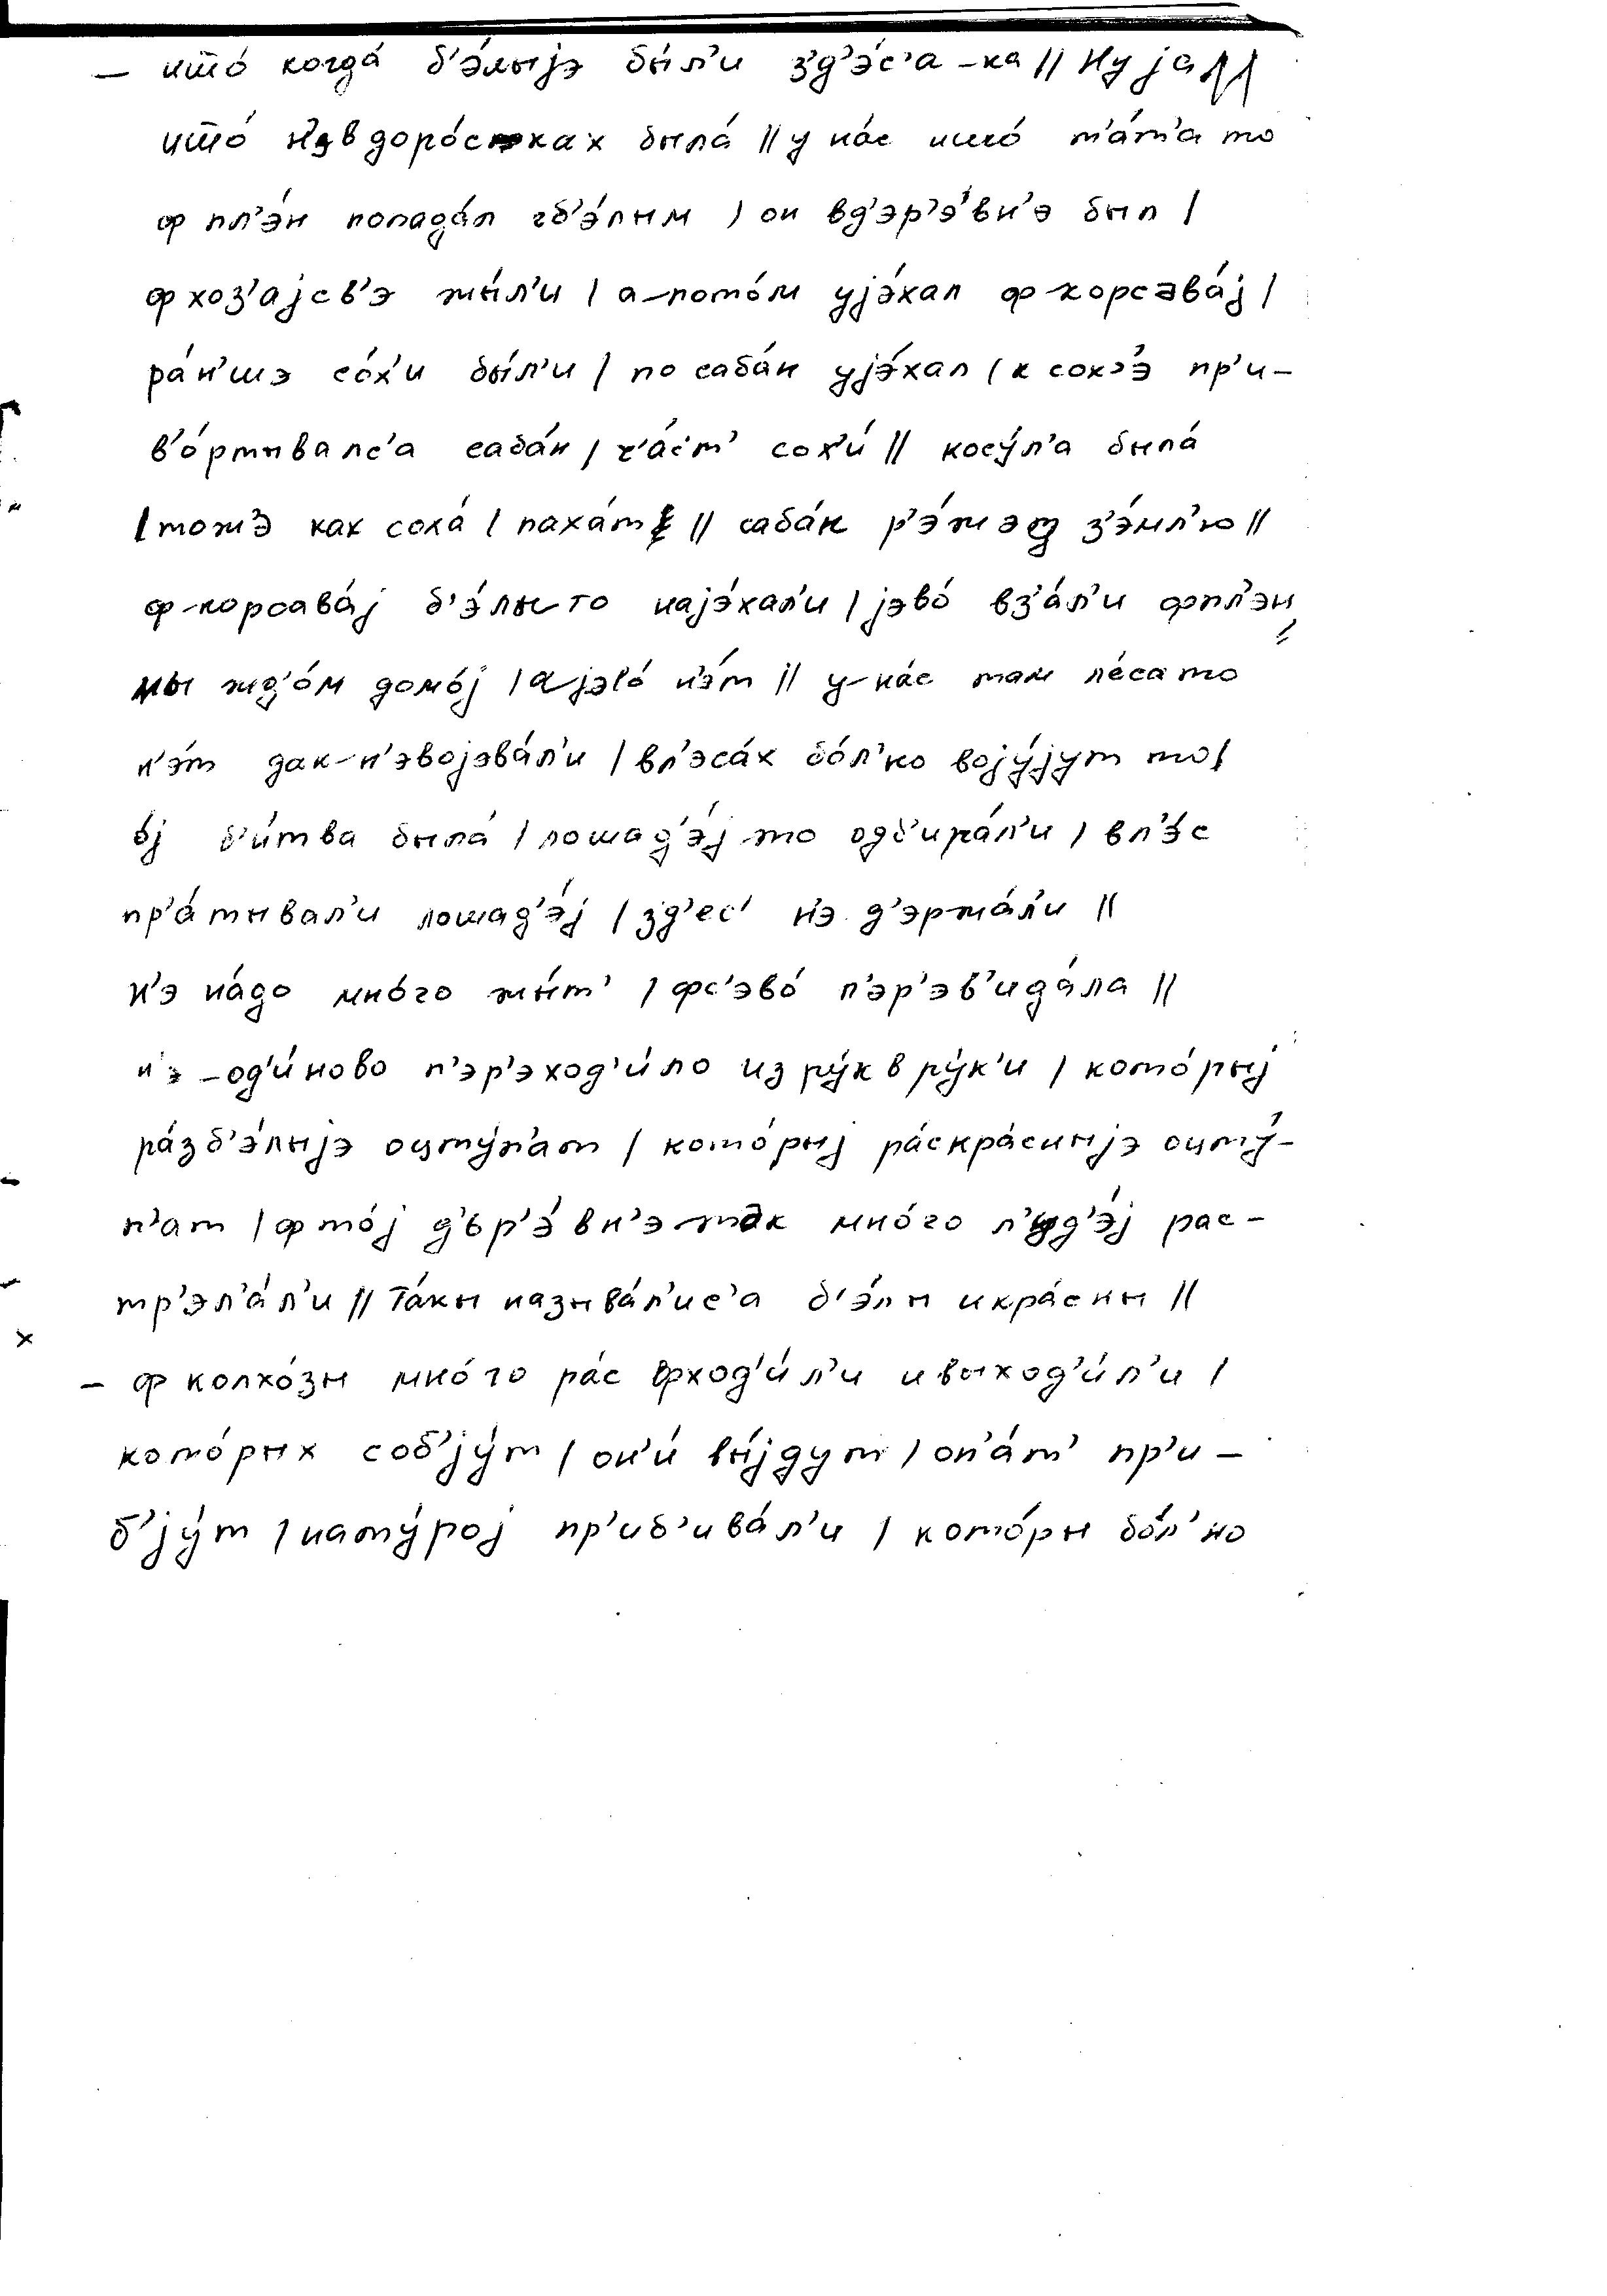 – што́ когда́ б'э́лыjэ бы́л'и з'д'э́с'а-ка || Ну jа ||
што́ н'эвдоро́стках была́ || у на́с ишо́ т'а́т'а то
ф пл'э́н попада́л гб'э́лым | он вд'эр'э́вн'э был |
фхоз'аjсв'э жы́л'и | а-пото́м уjэ́хал ф корсава́j |
ра́н'шэ со́х'и бы́л'и | по саба́н уjэ́хал | к сох'э́ пр'и-
в'о́ртывалс'а саба́н | ч'а́с'т' сох'и́ || косу́л'а была́
| тожэ как соха́ | паха́т || саба́н р'э́жэт з'э́мл'ю ||
ф-корсава́j б'э́лы-то наjэ́хал'и | jэво́ вз'а́л'и фпл'эн
мы жд'о́м домо́j | а jэво́ н'э́т || у-на́с там ле́са то
н'э́т дак-н'эвоjэва́л'и | вл'эса́х бо́л'но воjу́jут то |
о́j б'и́тва была́ | лошад'э́j то одб'ира́л'и | вл'э́с
пр'а́тывал'и лошад'э́j | зд'ес' н'э д'эржа́л'и ||
н'э на́до мно́го жы́т' | фс'эво́ п'эр'эв'ида́ла ||
н'э-од'и́ново п'эр'эход'и́ло из ру́к в ру́к'и | кото́рыj
ра́з б'э́лыjэ оцту́п'ат | кото́рыj ра́с кра́сныjэ оцту́-
п'ат | фто́j д'ьр'э́вн'э так мно́го л'уд'э́j рас-
тр'эл'а́л'и || Та́кы называ́л'ис'а б'э́лы и кра́сны ||
– ф колхо́зы мно́го ра́с фход'и́л'и и выход'и́л'и |
кото́рых соб'jу́т | он'и́ вы́jдут | оп'а́т' пр'и-
б'jу́т | нату́роj пр'иб'ива́л'и | кото́ры бо́л'но